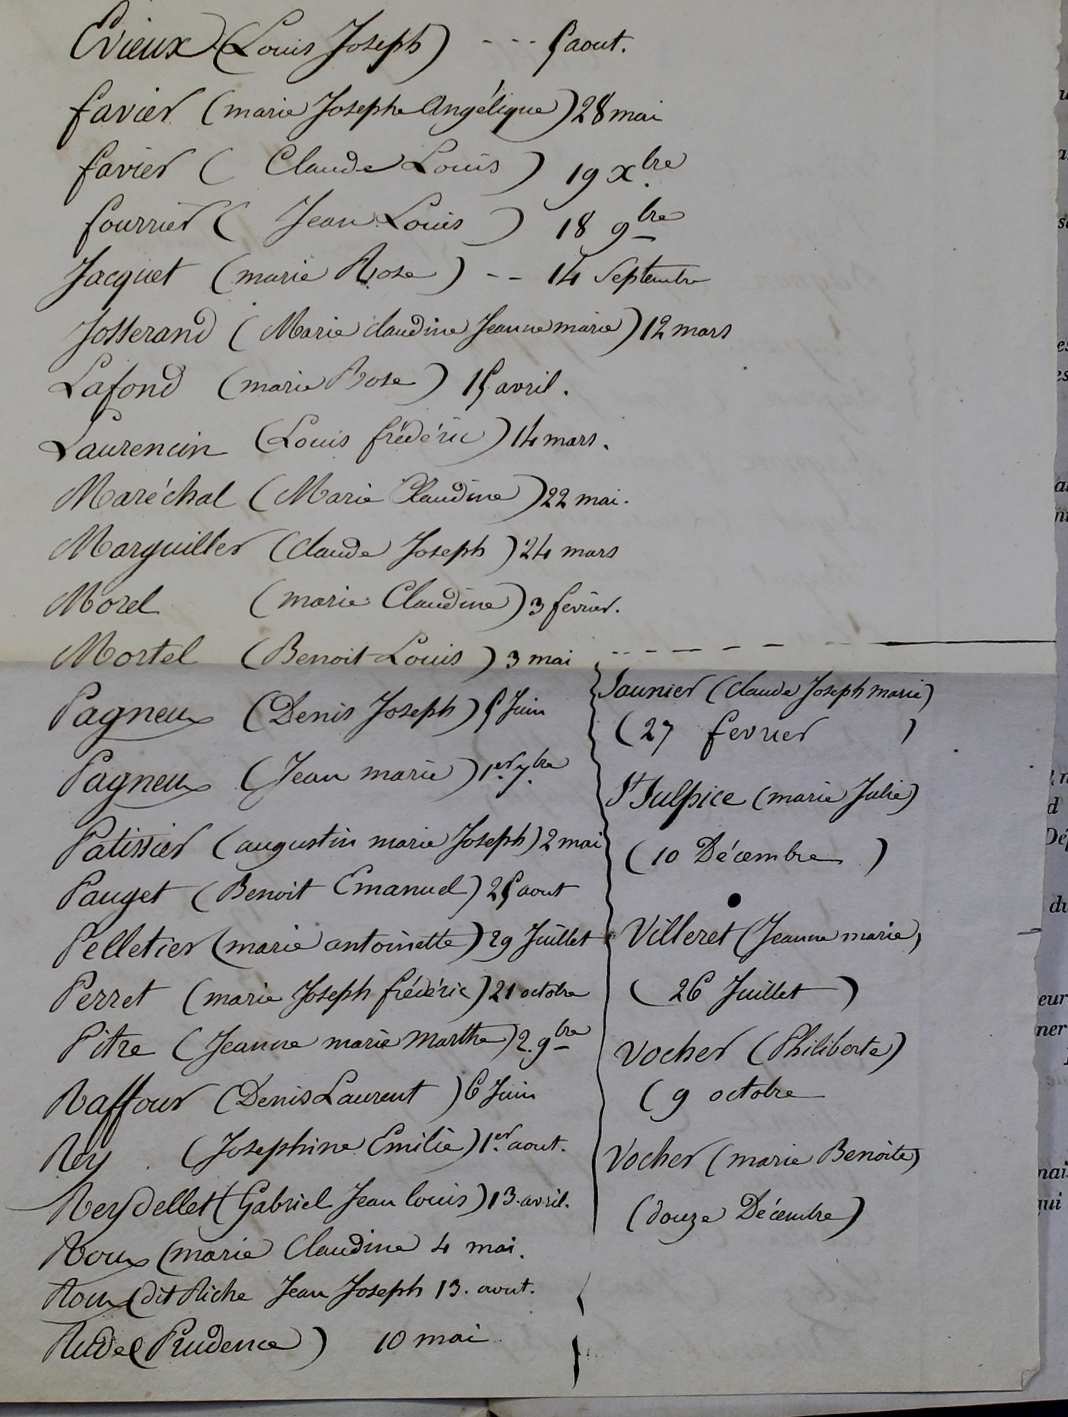 Evieux (Louis Joseph) --- 5 aout.
favier (marie Josephe Angélique) 28 mai
favier ( Claude Louis ) 19 Xbre
fourrier ( Jean Louis ) 18 9bre
Jacquet (marie Rose) -- 14 Septembre
Josserand (Marie claudine Jeanne marie) 12 mars
Lafond (marie Rose) 15 avril.
Laurencin (Louis frédéric) 14 mars.
Maréchal (Marie Claudine) 22 mai.
Marguiller (Claude Joseph) 24 mars
Morel (marie Claudine) 3 fevrier.
Mortel (Benoit Louis) 3 mai
Pagneux (Denis Joseph) 5 Juin
Pagneux (Jean marie) 1er 7bre
Patissier (augustin marie Joseph) 2 mai
Pauget (Benoit Emanuel) 25 aout
Pelletier (marie antoinette) 29 Juillet
Perret (marie Joseph frédéric) 21 octobre
Pitre (Jeanne marie Marthe) 2. 9bre
Raffour (Denis Laurent) 6 Juin
Rey (Josephine Emilie) 1er aout.
Reydellet (Gabriel Jean louis) 13. avril.
Roux (marie Claudine 4 mai.
Roux (dit Riche Jean Joseph 13. aout.
Rude (Prudence) 10 mai
Saunier (Claude Joseph marie)
(27 fevrier )
St Sulpice (marie Julie)
(10 Décembre )
Villeret (Jeanne marie)
(26 Juillet )
Vocher (Philiberte)
(9 octobre
Vocher (marie Benoite)
(douze Décembre)